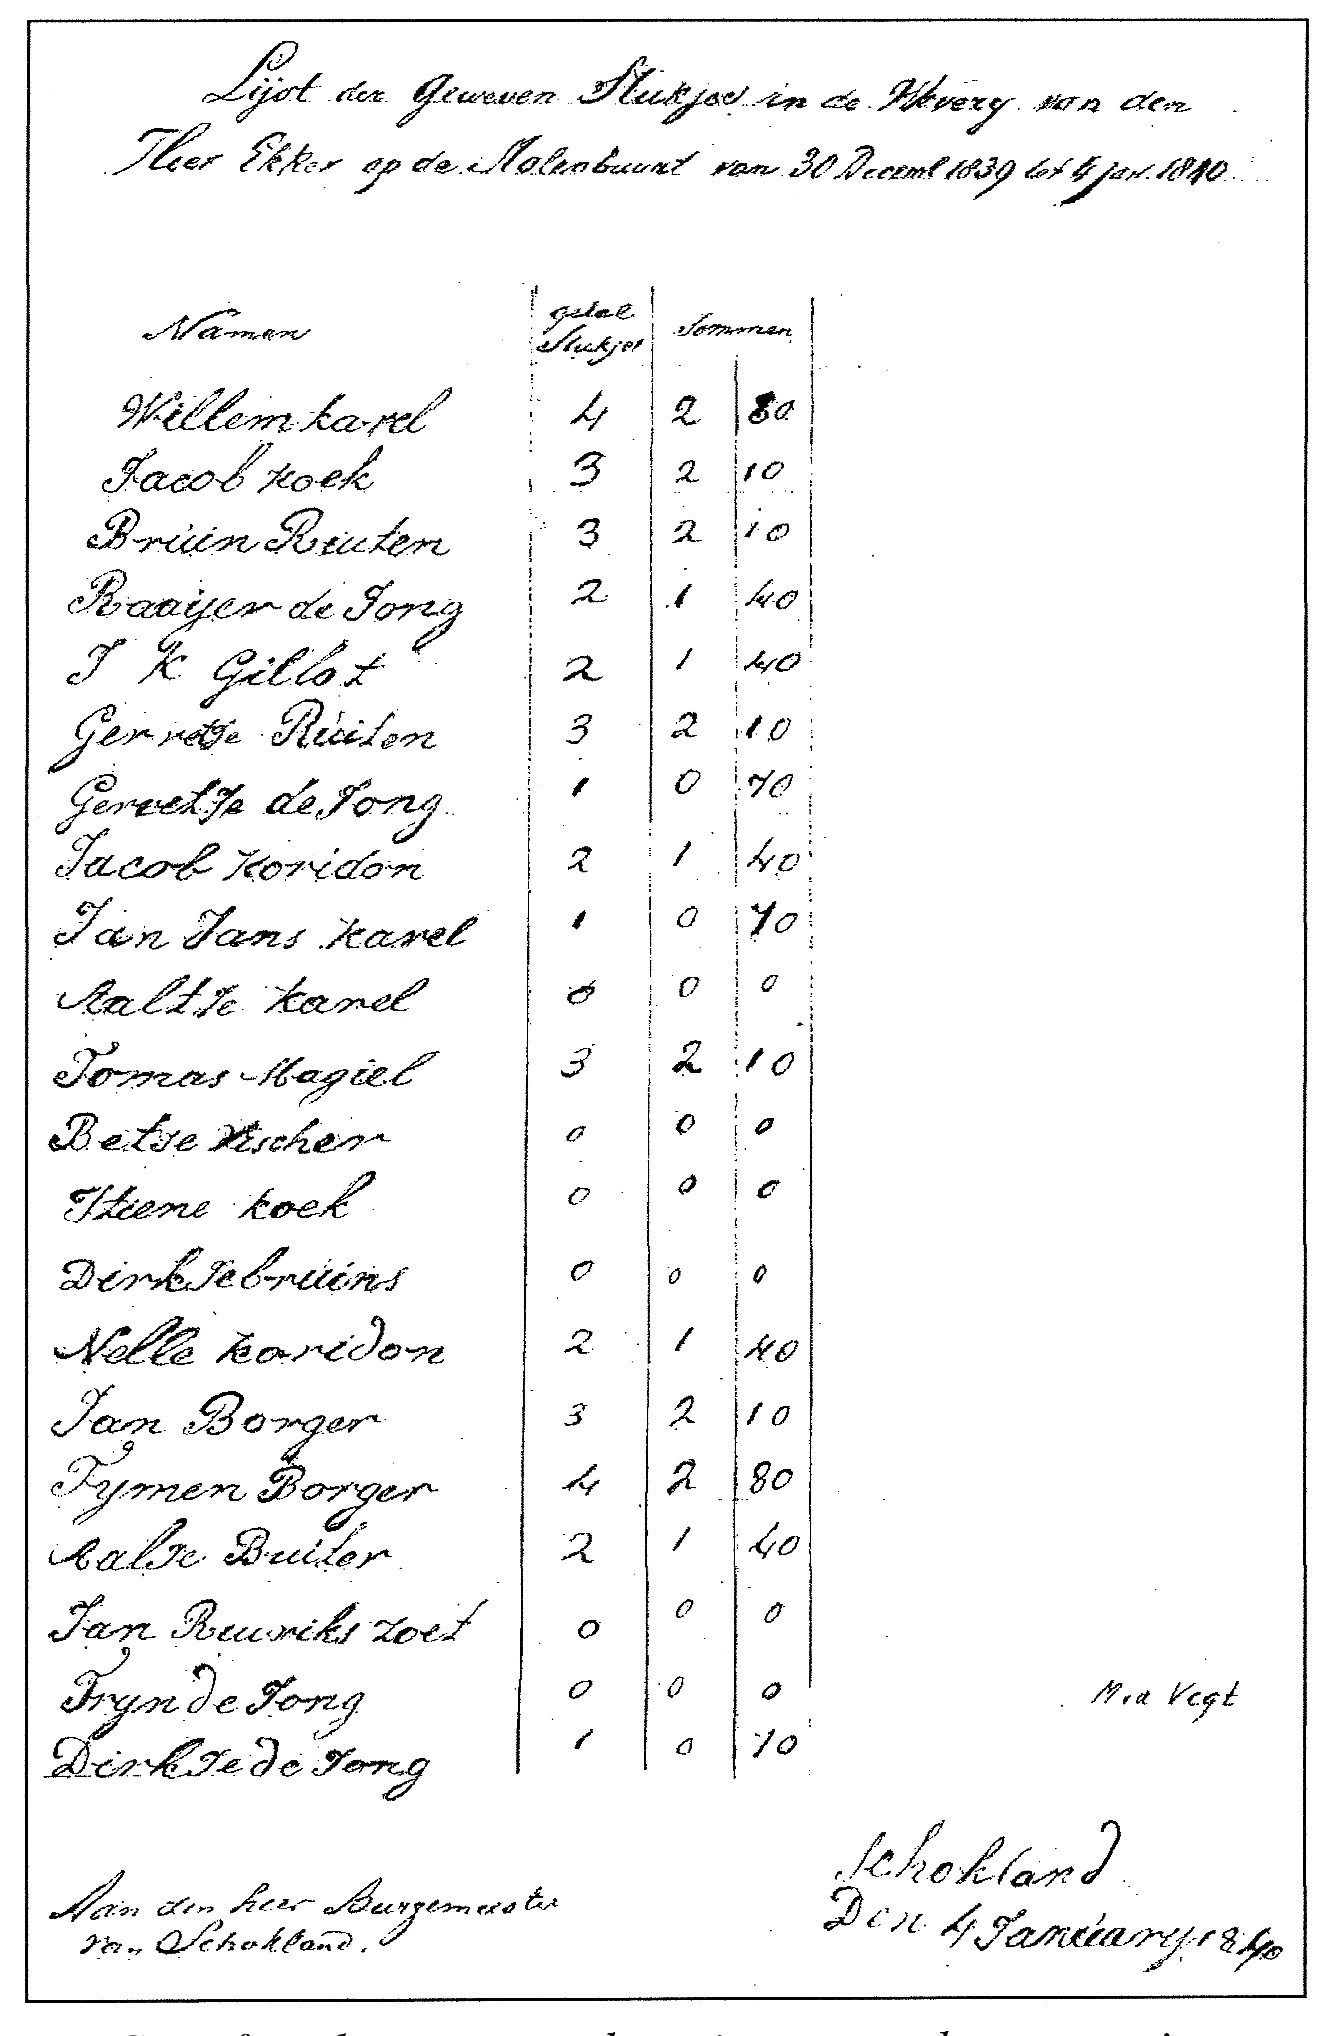 Lijst der Geweven Stukjes in de Wevery van den
Heer Ekker op de Molenbuurt van 30 Deceml 1839 tot 4 jan. 1840
Namen getal Stukjes Sommen
Willem karel 4 2 80
Jacob koek 3 2 10
Bruin Ruiten 3 2 10
Raaijer de Jong 2 1 40
J K Gillot 2 1 40
Gerretje Ruiten 3 2 10
GerretJe de Jong 1 0 70
Jacob koridon 2 1 40
Jan Jans karel 1 0 70
AaltJe karel 0 0 0
Tomas Magiel 3 2 10
BetJe Vischer 0 0 0
Stiene koek 0 0 0
DirkJe bruins 0 0 0
Nelle koridon 2 1 40
Jan Borger 3 2 10
Tymen Borger 4 2 80
AalJe Buiter 2 1 40
Jan Ruuriks zoet 0 0 0
Tryn de Jong 0 0 0
M.a Vegt
DirkJe de Jong 1 0 70
Schokland
Den 4 January 1840
Aan den heer Burgemeester
van Schokland.